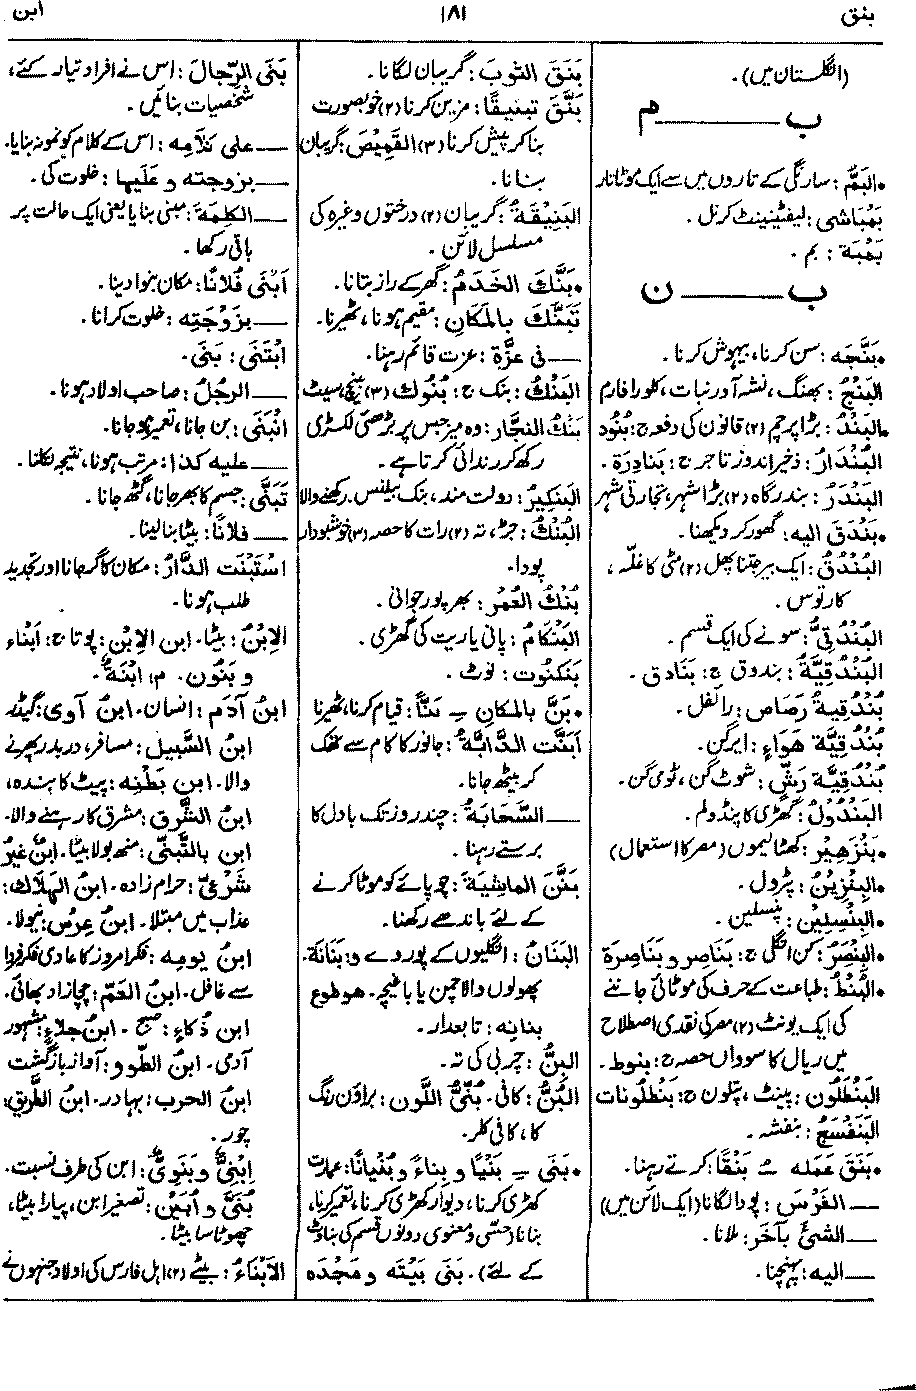 بنق
۱۸۱
ابن
(انگلستان میں)۔
ب ــــــ م
•البَمُّ : سارنگی کے تاروں میں سے ایک موٹا تار
بَمْبَاشی : لیفٹیننٹ کرنل ۔
بَمْبَة : بم ۔
ب ــــــ ن
•بَنَّجَه : سن کرنا، بیہوش کرنا ۔
البَنْجُ : بھنگ، نشہ آور نبات، کلورا فارم
•البَنْدُ : بڑا پرچم (۲) قانون کی دفعہ ج: بُنُود
البُنْدَارُ : ذخیرہ اندوز تاجر ج: بَنَادِرَة ۔
البَنْدَرُ : بندرگاہ (۲) بڑا شہر، تجارتی شہر
•بَنْدَقَ الیه: گھور کر دیکھنا ۔
البُنْدُقُ : ایک بیر جتنا پھل (۲) مٹی کا غلّہ ،
کارتوس ۔
البُنْدُقِیُّ : سونے کی ایک قسم ۔
البُنْدُقِیَّةُ : بندوق ج: بَنَادق ۔
بُنْدُقِیةُ رَصَاص : رائفل ۔
بُنْدُقِیَّة هَوَاءٍ : ایرگن ۔
بُنْدُقِیَّة رَشٍّ : شوٹ گن، ٹومی گن ۔
البَنْدُولُ : گھڑی کا پنڈولم ۔
•بَنْزَهِیْر : کھٹا لیموں (مصر کا استعمال)
•البِنْزِیْنُ : پٹرول ۔
•البِنْسِلِیْن : پنسلین ۔
•البِنْصَرُ : کن انگلی ج: بَنَاصِر و بَنَاصِرَة
•البُنْطُ : طباعت کے حرف کی موٹائی جاننے
کی ایک یونٹ (۲) مصر کی نقدی اصطلاح
میں ریال کا سوواں حصہ ج: بنوط ۔
البَنْطَلُون : پینٹ، پتلون ج: بَنْطَلُونات
البَنَفْسَجُ : بنفشہ ۔
•بَنَقَ عَمَله ـُ بَنْقًا: کرتے رہنا ۔
ـــ الغَرْسَ : پودا لگانا (ایک لائن میں)
ـــ الشیٔ بآخَر: ملانا ۔
ـــ الیه: پہنچنا ۔
بَنَقَ الثوبَ : گریبان لگانا ۔
بَنَّقَ تبنیقًا: مزین کرنا (۲) خوبصورت
بنا کر پیش کرنا (۳) القَمِیْصَ: گریبان
بنانا ۔
البَنِیْقَةُ : گریبان (۲) درختوں وغیرہ کی
مسلسل لائن ۔
•بَنَّكَ الخَدَمُ : گھر کے راز بتانا ۔
تَبَنَّكَ بالمَکَانِ : مقیم ہونا، ٹھیرنا ۔
ـــ فی عِزَّة : عزت قائم رہنا ۔
البَنْكُ : بنک ج: بُنُوك (۳) بینچ، سیٹ
بَنْكُ النجَّار : وہ میز جس پر بڑھئی لکڑی
رکھ کر رندائی کرتا ہے ۔
البَنکِیرُ : دولت مند، بنک بیلنس رکھنے والا
البُنْكُ : جڑ، تہ (۲) رات کا حصہ (۳) خوشبودار
پودا ۔
بُنْكُ العُمُر : بھرپور جوانی ۔
البَنْکَامُ : پانی یا ریت کی گھڑی ۔
بَنْکَنُوت : نوٹ ۔
•بَنَّ بالمکان ـِ بَنًّا: قیام کرنا، ٹھیرنا
اَبَنَّت الدَّابَّةُ : جانور کا کام سے تھک
کر بیٹھ جانا ۔
ـــ السَّحَابَةُ : چند روز تک بادل کا
برستے رہنا ۔
بَنَّنَ الماشیَةَ : چوپائے کو موٹا کرنے
کے لئے باندھے رکھنا ۔
البَنَانُ : انگلیوں کے پوردے و: بَنَانَة۔
پھولوں والا چمن یا باغیچہ ۔ هو طوع
بنانِه : تابعدار ۔
البِنُّ : چربی کی تہ ۔
البُنُّ : کافی ۔ بُنِّیُّ اللَّون : براؤن رنگ
کا، کافی کلر ۔
•بَنَی ـِ بَنْیًا و بِنَاءً و بُنْیَانًا: عمارت
کھڑی کرنا، دیوار کھڑی کرنا، تعمیر کرنا،
بنانا (حسّی و معنوی دونوں قسم کی بناوٹ
کے لئے)۔ بَنَی بَیْتَه و مَجْدَه
بَنَی الرِّجالَ : اس نے افراد تیار کئے،
شخصیات بنائیں ۔
ـــ علی کلَامِه : اس کے کلام کو نمونہ بنایا۔
ـــ بزوجته و عَلَیها : خلوت کی ۔
ـــ الکلِمَةَ : مبنی بنایا یعنی ایک حالت پر
باقی رکھا ۔
اَبْنَی فُلَانًا : مکان بنوا دینا ۔
ـــ بزَوْجَتِه : خلوت کرانا ۔
ابْتَنَی : بَنَی ۔
ـــ الرجُلُ : صاحب اولاد ہونا ۔
انْبَنَی : بن جانا، تعمیر ہوجانا ۔
ـــ علیه کذا : مرتب ہونا، نتیجہ نکلنا ۔
تَبَنَّی : جسم کا بھر جانا، گٹھ جانا ۔
ـــ فلانًا : بیٹا بنا لینا ۔
اسْتَبْنَت الدَّارُ : مکان کا گر جانا اور تجدید
طلب ہونا ۔
الاِبْنُ : بیٹا ۔ ابن الاِبْنِ : پوتا ج: اَبْنَاء
و بَنُون ۔ م: ابْنَةٌ ۔
ابنُ آدَم : انسان ۔ ابنُ آوی : گیدڑ
ابنُ السَّبِیل : مسافر، دربدر پھرنے
والا ۔ ابن بَطْنِه : پیٹ کا بندہ،
ابنُ الشَّرق : مشرق کا رہنے والا ۔
ابن بالتَّبَنِّی : منھ بولا بیٹا ۔ ابنٌ غیرُ
شَرْعِیٍّ : حرام زادہ ۔ ابنُ الهَلَاك :
عذاب میں مبتلا ۔ ابنُ عِرْس : نیولا ۔
ابنُ یومِه : فکر امروز کا عادی فکر فردا
سے غافل ۔ ابنُ العَمِّ : چچا زاد بھائی ۔
ابن ذُکَاء : صبح ۔ ابنُ جلَاء : مشہور
آدمی ۔ ابنُ الطَّود : آواز بازگشت
ابنُ الحرب : بہادر ۔ ابنُ الطَّرِیق :
چور ۔
اِبْنِیٌّ وبَنَوِیٌّ : ابن کی طرف نسبت ۔
بُنَیّ و اُبَیْن : تصغیر ابن، پیارا بیٹا،
چھوٹا سا بیٹا ۔
الاَبْنَاءُ : بیٹے (۲) اہل فارس کی اولاد جنہوں نے